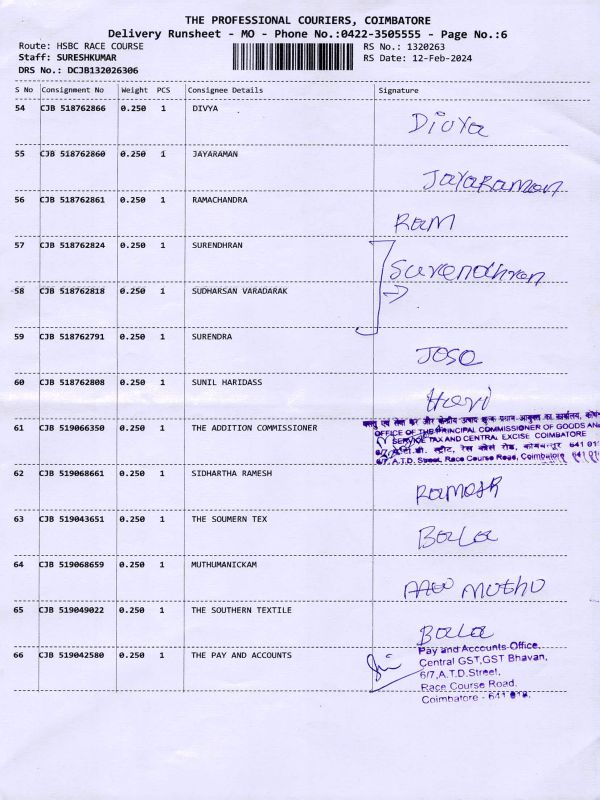 THE PROFESSIONAL COURIERS, COIMBATORE
Delivery Runsheet - MO - Phone No.:0422-3505555 - Page No.:6
Route: HSBC RACE COURSE RS No.: 1320263
Staff: SURESHKUMAR RS Date: 12-Feb-2024
DRS No.: DCJB132026306
S No Consignment No Weight PCS Consignee Details Signature
54 CJB 518762866 0.250 1 DIVYA Divya
55 CJB 518762860 0.250 1 JAYARAMAN Jayaraman
56 CJB 518762861 0.250 1 RAMACHANDRA Ram
57 CJB 518762824 0.250 1 SURENDHRAN Surendhran
58 CJB 518762818 0.250 1 SUDHARSAN VARADARAK
59 CJB 518762791 0.250 1 SURENDRA Jose
60 CJB 518762808 0.250 1 SUNIL HARIDASS Hari
61 CJB 519066350 0.250 1 THE ADDITION COMMISSIONER
OFFICE OF THE PRINCIPAL COMMISSIONER OF GOODS AND
SERVICE TAX AND CENTRAL EXCISE COIMBATORE
6/7, A.T.D. Street, Race Course Road, Coimbatore
62 CJB 519068661 0.250 1 SIDHARTHA RAMESH Ramesh
63 CJB 519043651 0.250 1 THE SOUMERN TEX Bala
64 CJB 519068659 0.250 1 MUTHUMANICKAM Muthu
65 CJB 519049022 0.250 1 THE SOUTHERN TEXTILE Bala
66 CJB 519042580 0.250 1 THE PAY AND ACCOUNTS
Pay and Accounts Office,
Central GST,GST Bhavan,
6/7,A.T.D.Street,
Race Course Road,
Coimbatore - 641 018.